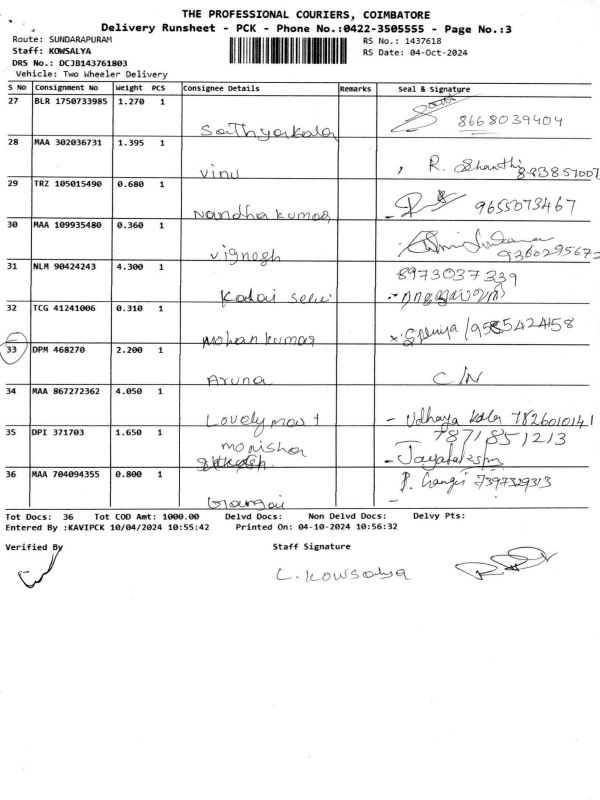 THE PROFESSIONAL COURIERS, COIMBATORE
Delivery Runsheet - PCK - Phone No.:0422-3505555 - Page No.:3
Route: SUNDARAPURAM RS No.: 1437618
Staff: KOWSALYA RS Date: 04-Oct-2024
DRS No.: DCJB143761803
Vehicle: Two Wheeler Delivery
S No Consignment No Weight PCS Consignee Details Remarks Seal & Signature
27 BLR 1750733985 1.270 1
Sathyakala 8668039404
28 MAA 302036731 1.395 1
Vinu R. Shanthi
29 TRZ 105015490 0.680 1
Nandha kumar 9655073467
30 MAA 109935480 0.360 1
Vignesh
31 NLM 90424243 4.300 1 8973037339
Kadai selvi
32 TCG 41241006 0.310 1
Mohan kumar
33 DPM 468270 2.200 1
Aruna C/N
34 MAA 867272362 4.050 1
Lovely mart - Udhaya kala 7826010141
35 DPI 371703 1.650 1 7871851213
monisha
36 MAA 704094355 0.800 1 7397329313
Gangai
Tot Docs: 36 Tot COD Amt: 1000.00 Delvd Docs: Non Delvd Docs: Delvy Pts:
Entered By :KAVIPCK 10/04/2024 10:55:42 Printed On: 04-10-2024 10:56:32
Verified By Staff Signature
L. Kowsalya